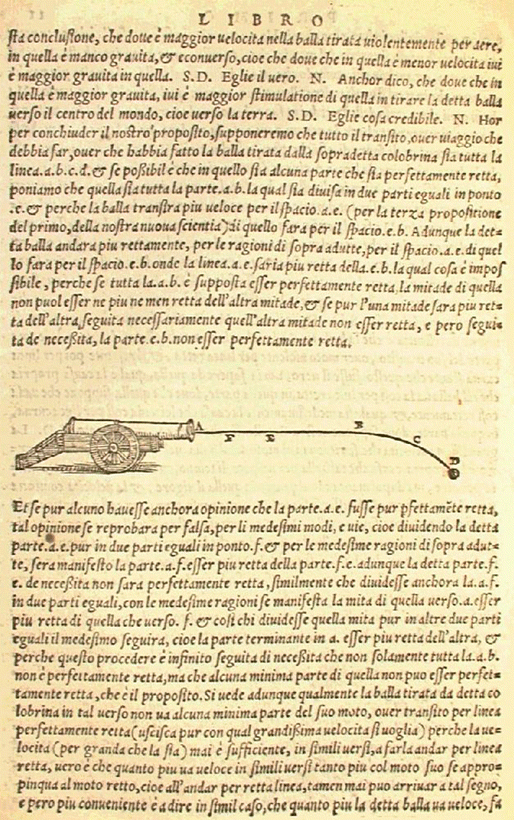 LIBRO
sta conclusione, che doue è maggior velocita nella balla tirata uiolentemente per aere,
in quella è manco grauita, & econuerso, cioe che doue che in quella è menor velocita iui
è maggior grauita in quella. S.D. Eglie il uero. N. Anchor dico, che doue che in
quella è maggior grauita, iui è maggior stimulatione di quella in tirare la detta balla
verso il centro del mondo, cioe verso la terra. S.D. Eglie cosa credibile. N. Hor
per conchiuder il nostro proposito, supponeremo che tutto il transito, ouer uiaggio che
debbia far, ouer che habbia fatto la balla tirata dalla sopradetta colobrina sia tutta la
linea.a.b.c.d. & se poßibil è che in quello sia alcuna parte che sia perfettamente retta,
poniamo che quella sia tutta la parte.a.b. la qual sia diuisa in due parti eguali in ponto
.e. & perche la balla transira piu veloce per il spacio.a.e. (per la terza propositione
del primo, della nostra nuoua scientia) di quello fara per il spacio.e.b. Adunque la det=
ta balla andara piu rettamente, per le ragioni di sopra adutte, per il spacio.a.e. di quel
lo fara per il spacio.e.b. onde la linea.a.e. saria piu retta della.e.b. la qual cosa è impos
sibile, perche se tutta la.a.b. è supposta esser perfettamente retta, la mitade di quella
non puol esser ne piu ne men retta dell'altra mitade, & se pur l'una mitade sara piu ret=
ta dell'altra, seguita necessariamente quell'altra mitade non esser retta, e pero segui=
ta de necessita, la parte.e.b. non esser perfettamente retta.
A F E B C D
Et se pur alcuno hauesse anchora opinione che la parte.a.e. fusse pur pfettamẽte retta,
tal opinione se reprobara per falsa, per li medesimi modi, e uie, cioe diuidendo la detta
parte.a.e. pur in due parti eguali in ponto.f. & per le medesime ragioni di sopra adut=
te, sera manifesto la parte.a.f. esser piu retta della parte.f.e. adunque la detta parte.f.
e. de neceßita non sara perfettamente retta, similmente chi diuidesse anchora la.a.f.
in due parti eguali, con le medesime ragioni se manifesta la mita di quella uerso.a. esser
piu retta di quella che uerso. f. & cosi chi diuidesse quella mita pur in altre due parti
eguali il medesimo seguira, cioe la parte terminante in a. esser piu retta dell'altra, &
perche questo procedere è infinito seguita di neceßita che non solamente tutta la.a.b.
non è perfettamente retta, ma che alcuna minima parte di quella non puo esser perfet=
tamente retta, che è il proposito. Si uede adunque qualmente la balla tirata da detta co
lobrina in tal uerso non ua alcuna minima parte del suo moto, ouer transito per linea
perfettamente retta (uscisca pur con qual grandißima velocita si uoglia) perche la ue=
locita (per granda che la sia) mai è sufficiente, in simili uersi, a farla andar per linea
retta, uero è che quanto piu ua veloce in simili uersi tanto piu col moto suo se appro=
pinqua al moto retto, cioe all'andar per retta linea, tamen mai puo arriuar a tal segno,
e pero piu conueniente è a dire in simil caso, che quanto piu la detta balla ua veloce, fa